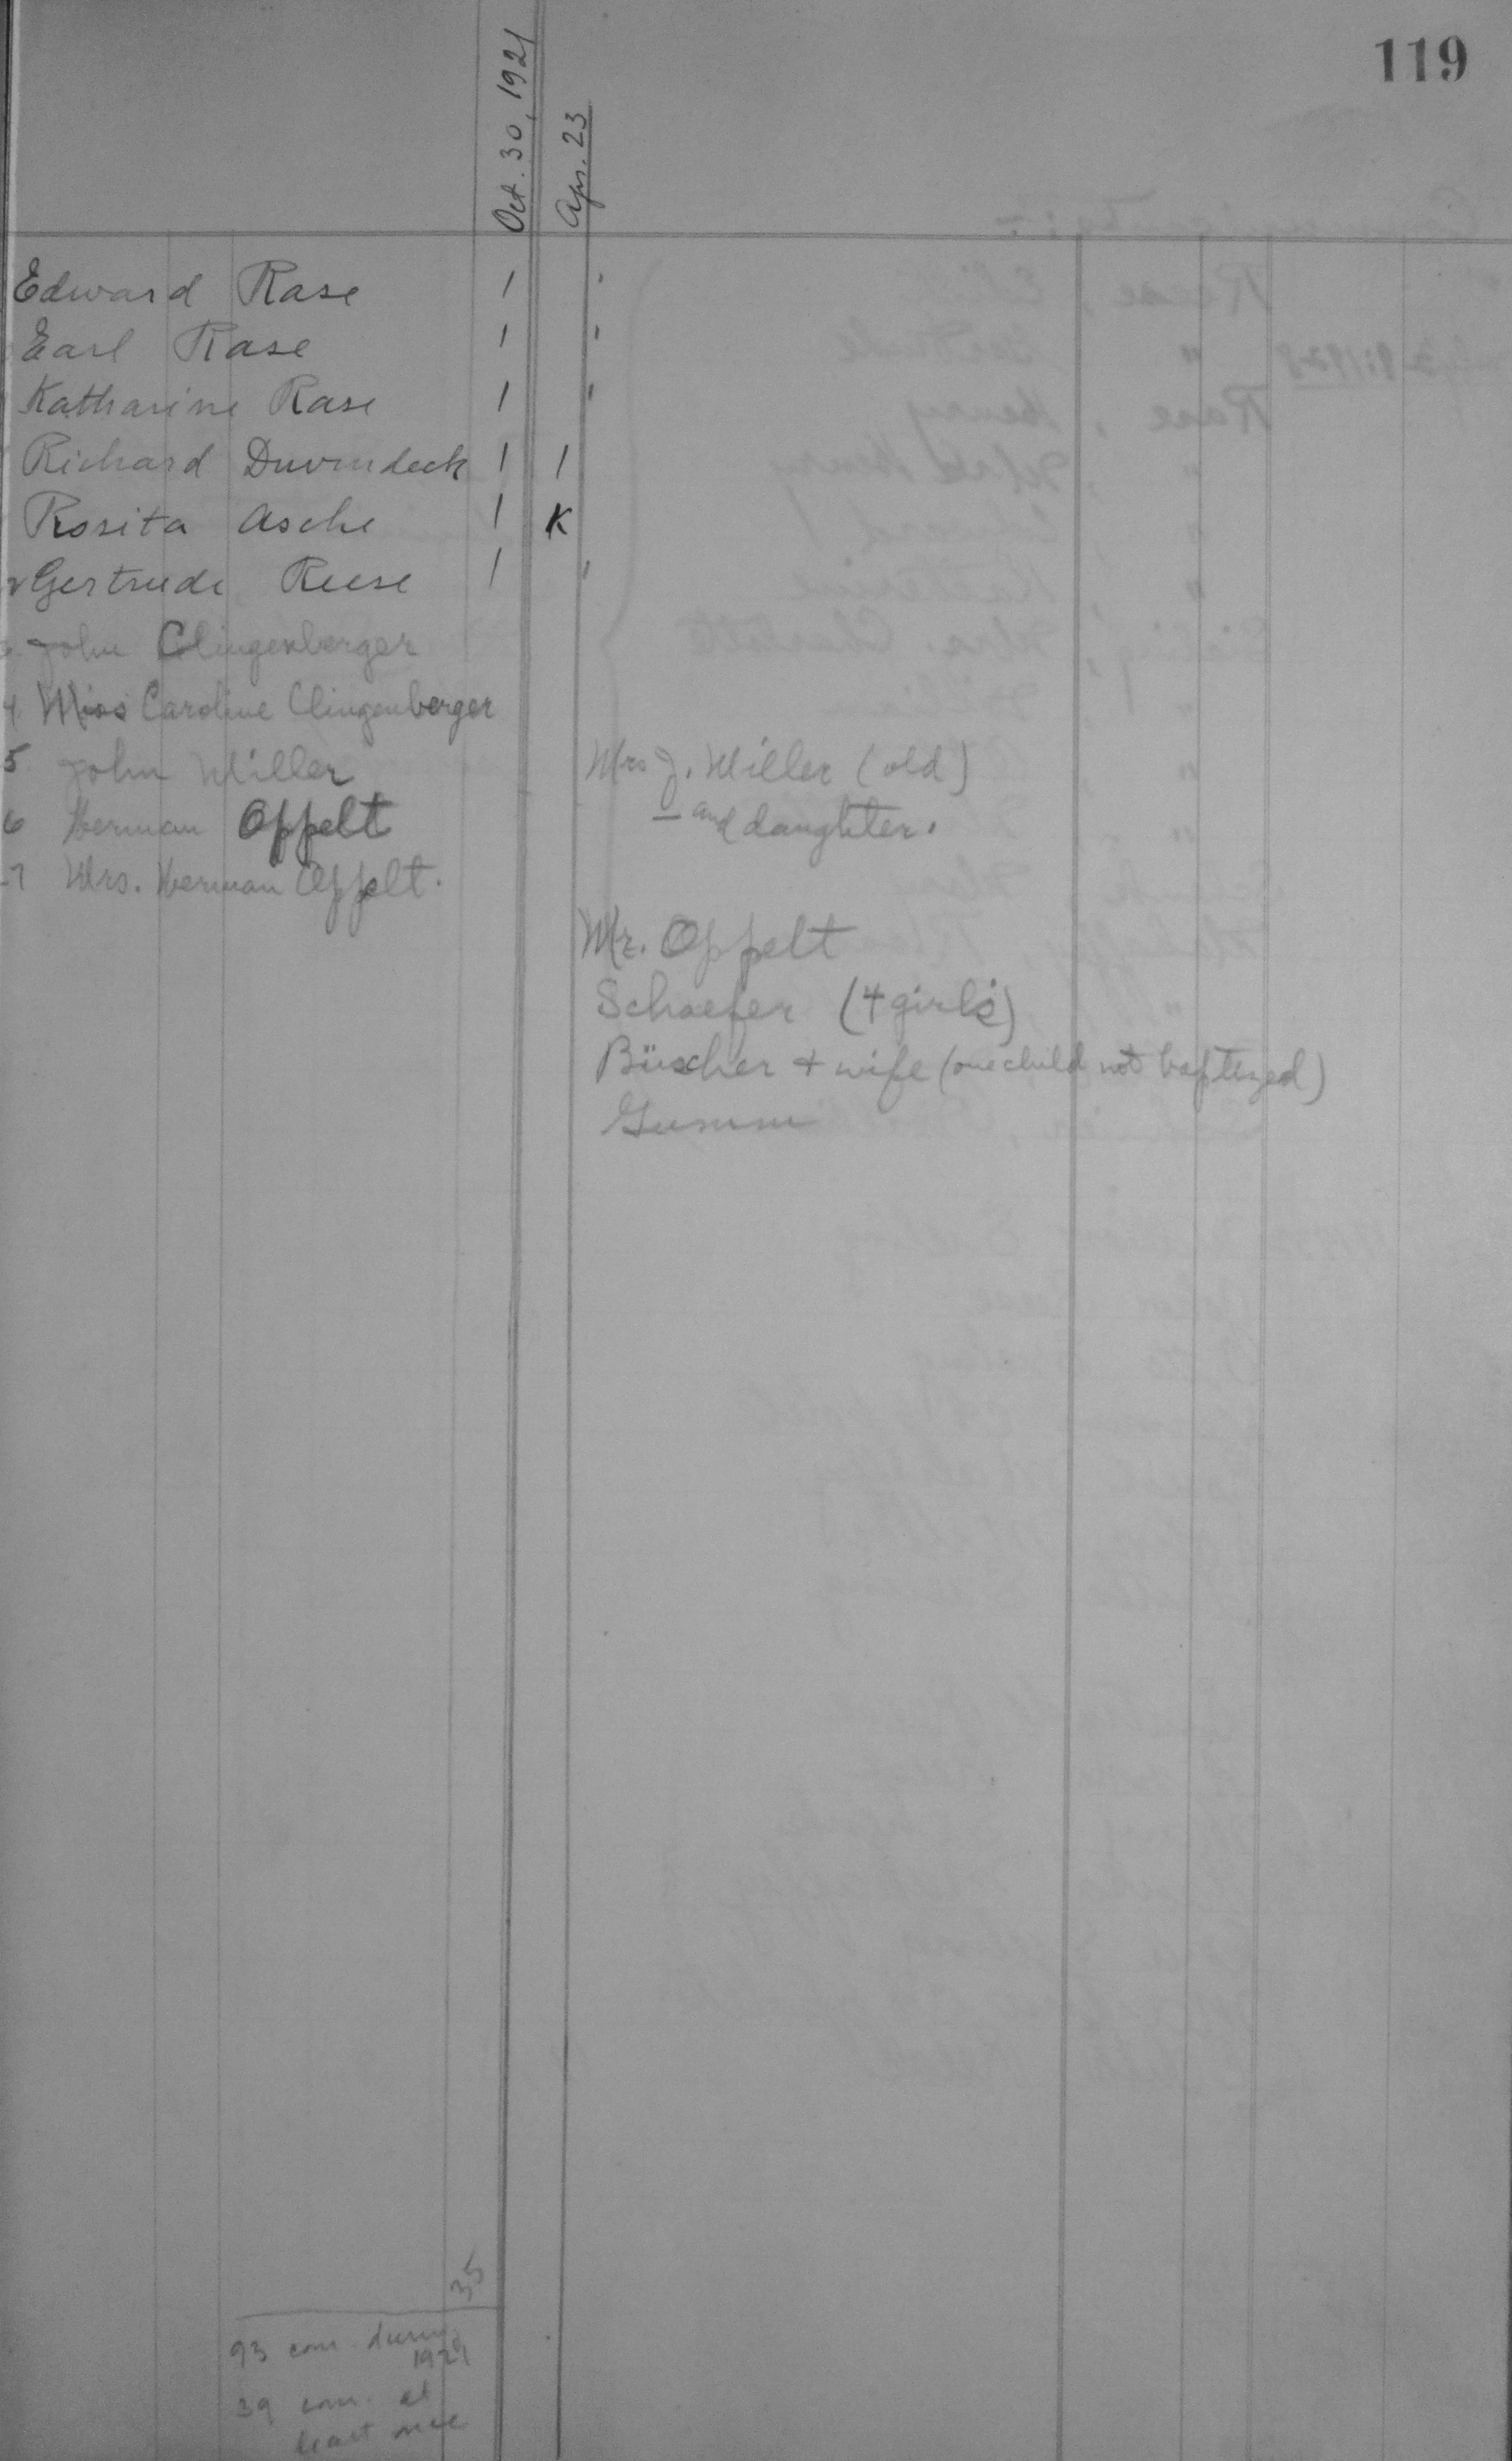 119
Oct. 30, 1921
Apr. 23
Edward Rase 1
Earl Rase 1
Katharine Rase 1
Richard Duvendeck 1 1
Rosita Asche 1 K
Gertrude Reese 1
John Clingenberger
4 Miss Caroline Clingenberger
5 John Miller
6 Herman Oppelt
7 Mrs. Herman Oppelt.
Mrs J. Miller (old)
– and daughter.
Mr. Oppelt
Schaefer (4 girls)
Büscher + wife (one child not baptized)
Gumm
35
93 com. during
1921
39 com. at
least once